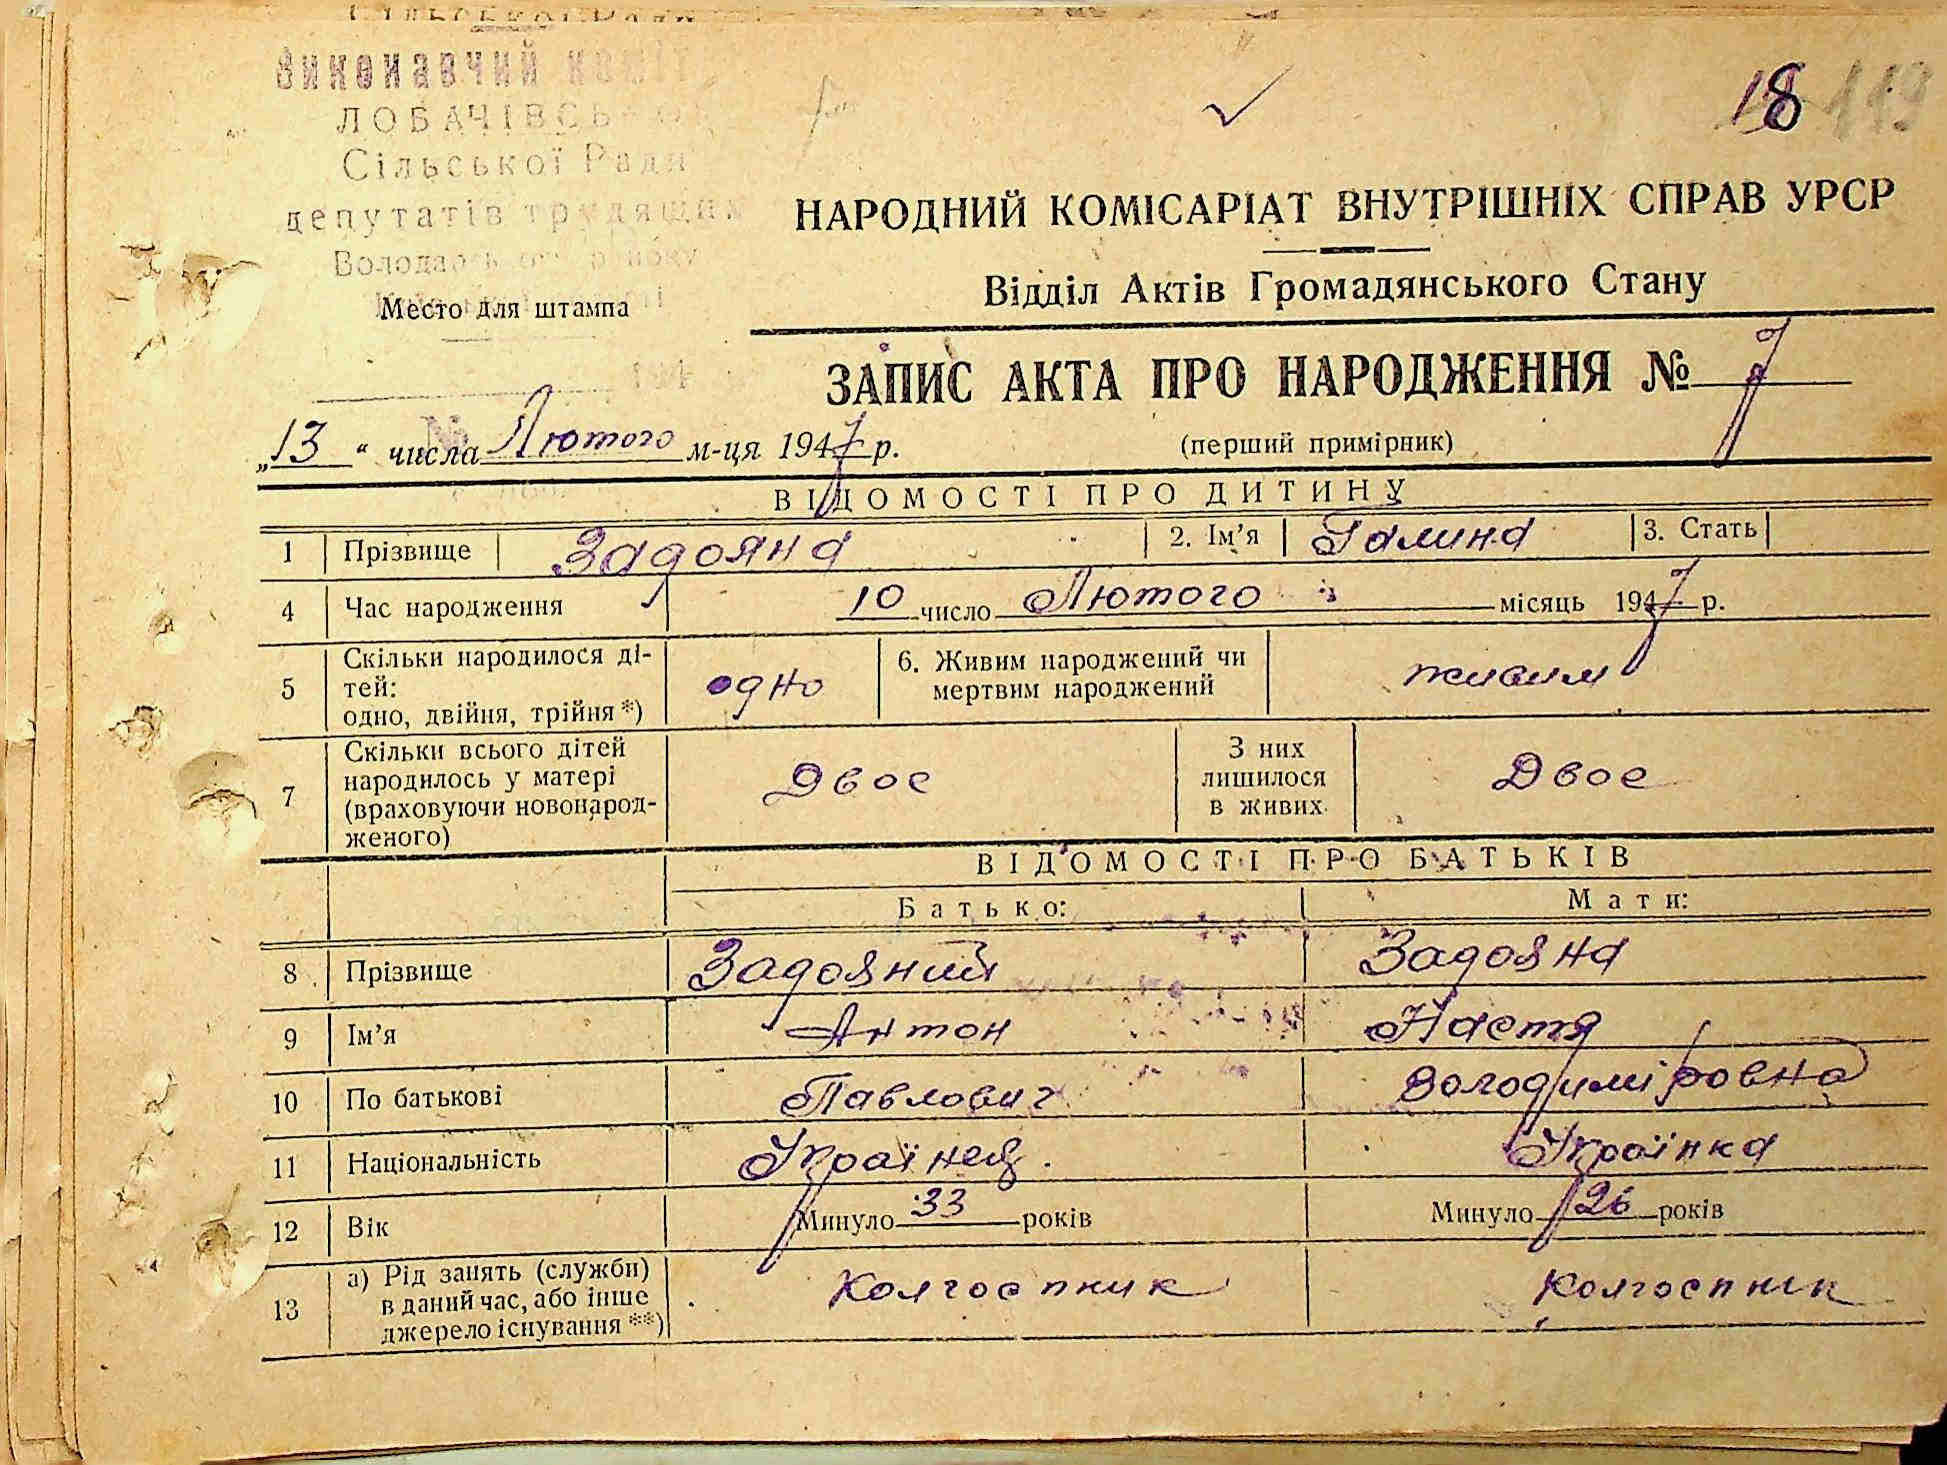 Виконавчий комітет
ЛОБАЧІВСЬКОЇ
Сільської Ради
депутатів трудящих
Володарського району
Место для штампа
194
18 119
НАРОДНИЙ КОМІСАРІАТ ВНУТРІШНІХ СПРАВ УРСР
Відділ Актів Громадянського Стану
ЗАПИС АКТА ПРО НАРОДЖЕННЯ № 7
„13“ числа Лютого м-ця 1947 р.
(перший примірник)
ВІДОМОСТІ ПРО ДИТИНУ
1 Прізвище Задояна 2. Ім’я Галина 3. Стать
4 Час народження 10 число Лютого місяць 1947 р.
5 Скільки народилося ді-
тей:
одно, двійня, трійня *) одно 6. Живим народжений чи
мертвим народжений живим
7 Скільки всього дітей
народилось у матері
(враховуючи новонарод-
женого) Двоє З них
лишилося
в живих Двоє
ВІДОМОСТІ ПРО БАТЬКІВ
Батько: Мати:
8 Прізвище Задояний Задояна
9 Ім’я Антон Настя
10 По батькові Павлович Володиміровна
11 Національність Українец Українка
12 Вік Минуло 33 років Минуло 26 років
13 а) Рід занять (служби)
в даний час, або інше
джерело існування **) Колгоспник Колгоспник